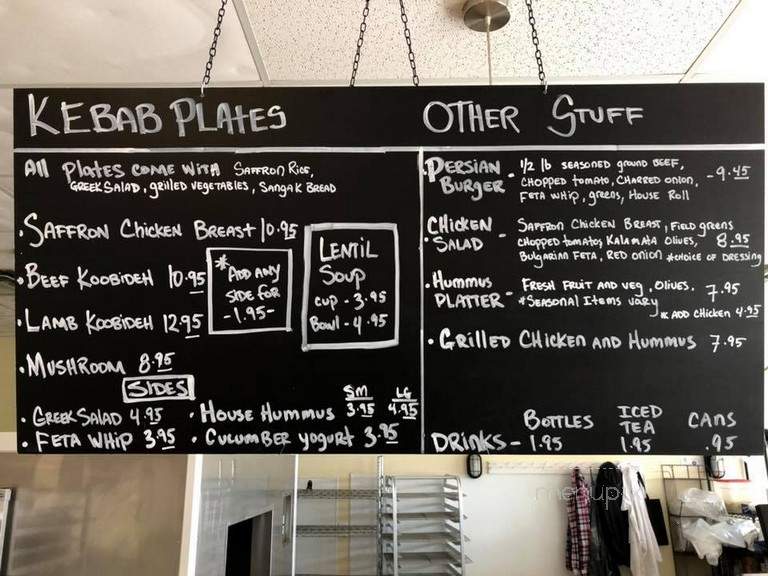 KEBAB PLATES
All PLATES COME WITH SAFFRON RICE,
GREEK SALAD, grilled VEGETABLES, SANGAK BREAD
• SAFFRON CHICKEN BREAST 10.95
• BEEF KOOBIDEH 10.95
• LAMB KOOBIDEH 12.95
• MUSHROOM 8.95
* ADD ANY
SIDE FOR
-1.95-
LENTIL
SOUP
CUP - 3.95
BOWL - 4.95
SIDES
• GREEK SALAD 4.95
• FETA WHIP 3.95
SM LG
• HOUSE HUMMUS 3.95 4.95
• CUCUMBER YOGURT 3.95
OTHER STUFF
• PERSIAN BURGER - 1/2 lb SEASONED GROUND BEEF,
CHOPPED TOMATO, CHARRED ONION, - 9.45
FETA WHIP, greens, HOUSE ROLL
• CHICKEN SALAD - SAFFRON CHICKEN BREAST, FIELD greens
CHOPPED TOMATOES, KALAMATA OLIVES, 8.95
BULGARIAN FETA, RED ONION *CHOICE OF DRESSING
• HUMMUS PLATTER - FRESH FRUIT AND VEG, OLIVES. 7.95
*SEASONAL ITEMS VARY
* ADD CHICKEN 4.95
• GRILLED CHICKEN AND HUMMUS 7.95
BOTTLES ICED TEA CANS
DRINKS - 1.95 1.95 .95
menupix